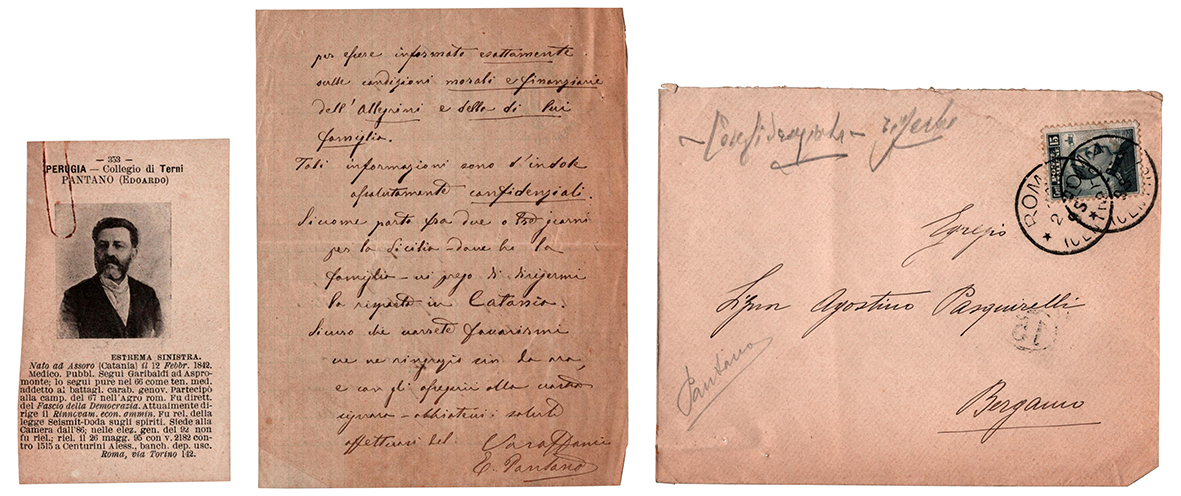 — 353 —
PERUGIA — Collegio di Terni
PANTANO (EDOARDO)
ESTREMA SINISTRA.
Nato ad Assoro (Catania) il 12 Febbr. 1842.
Medico. Pubbl. Seguì Garibaldi ad Aspro-
monte; lo seguì pure nel 66 come ten. med.
addetto ai battagl. carab. genov. Partecipò
alla camp. del 67 nell'Agro rom. Fu dirett.
del Fascio della Democrazia. Attualmente di-
rige il Rinnovam. econ. ammin. Fu rel. della
legge Seismit-Doda sugli spiriti. Siede alla
Camera dall'86; nelle elez. gen. del 92 non
fu riel.; riel. il 26 magg. 95 con v. 2182 con-
tro 1515 a Centurini Aless., banch. dep. usc.
Roma, via Torino 142.
per essere informato esattamente
sulle condizioni morali e finanziarie
dell'Allegrini e della di lui
famiglia.
Tali informazioni sono d'indole
assolutamente confidenziali.
Siccome parto fra due o tre giorni
per la Sicilia – dove ho la
famiglia – vi prego di dirigermi
la risposta in Catania.
Sicuro che vorrete favorirmi
ve ne ringrazio sin da ora,
e con gli ossequi alla vostra
signora – abbiatevi i saluti
affettuosi del
E. Pantano
Confidenziale
ROMA
15
Egregio
Sign Agostino Pasquinelli
Bergamo
Pantano